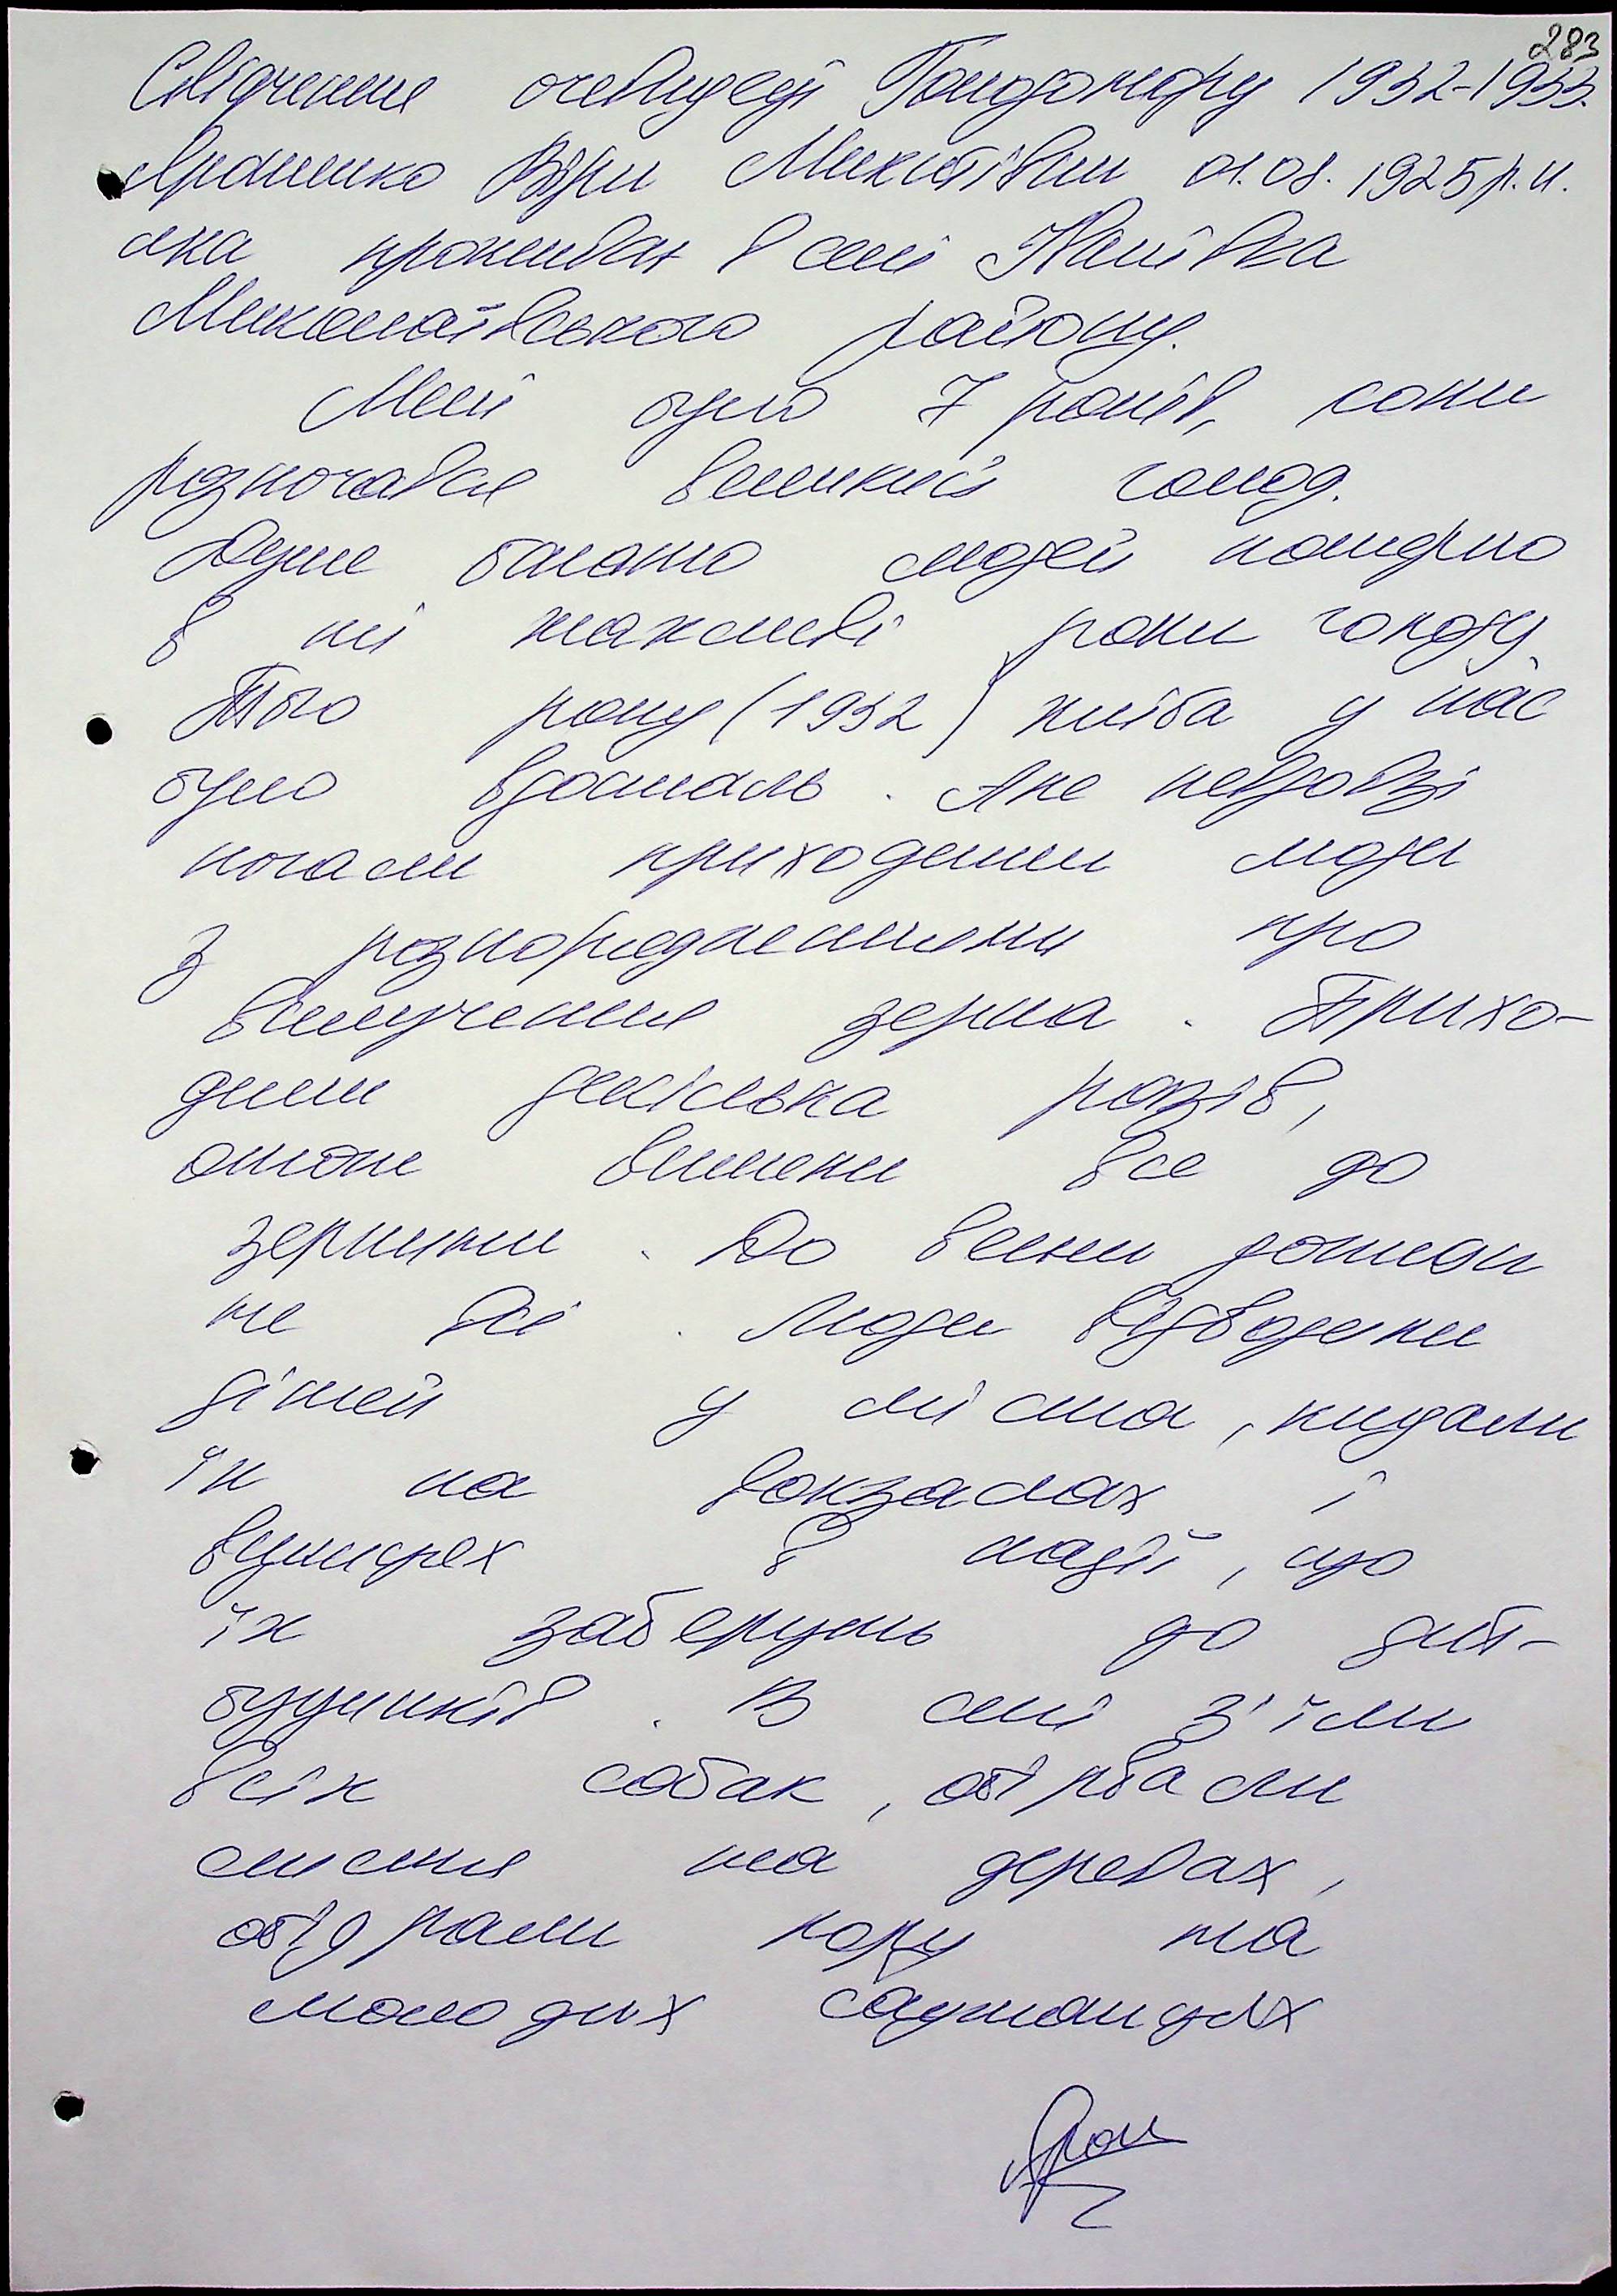 283
Свідчення очевидеці Голодомору 1932-1933.
Віри Микитівни 01.08. 1925 р.н.
яка проживає в селі
Миколаївського району.
Мені було 7 років, коли
розпочався великий голод.
Дуже багато людей померло
в ті жахливі роки голоду.
Того року (1932) хліба у нас
було вдосталь. Але невдовзі
почали приходити люди
з розпорядженнями про
вилучення зерна. Прихо-
дили декілька разів,
отож вимели все до
зернини. До весни дожили
не всі. Люди відводили
дітей у міста, кидали
їх на вокзалах і
вулицях в надії, що
їх заберуть до дит-
будинків. В селі з'їли
всіх собак, обірвали
листя на деревах,
обідрали кору на
молодих саджанцях